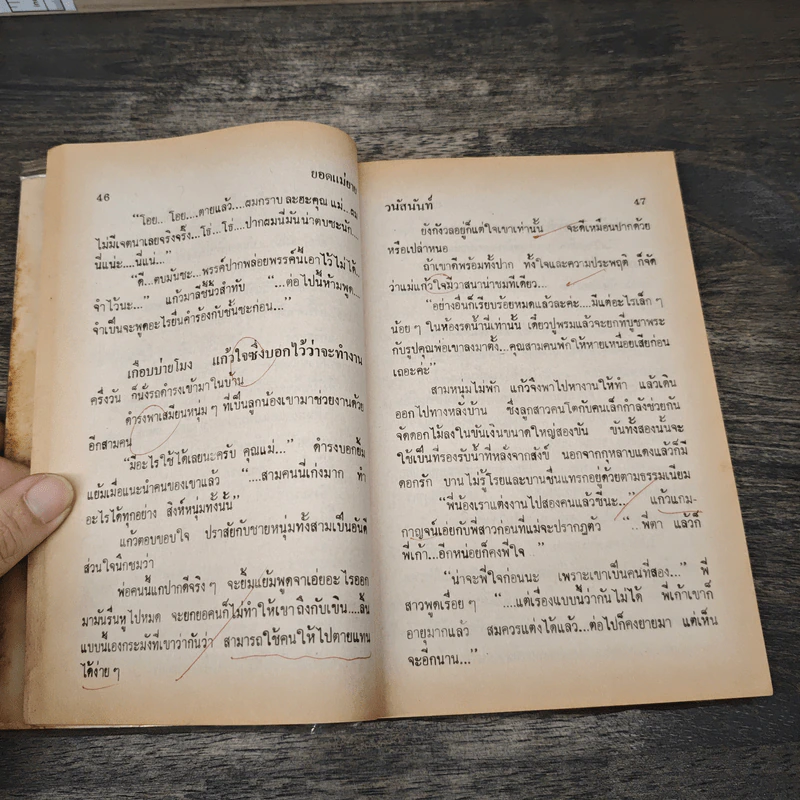 46
ยอดแม่ยาย
“โอย... โอย....ตายแล้ว....ผมกราบ ละฮะคุณ แม่...ผม
ไม่มีเจตนาเลยจริงจริ๊ง...โธ่...โธ่....ปากผมนี่มันน่าตบซะนัก...
นี่แน่ะ....นี่แน่...”
“ดี...ตบมันซะ...พรรค์ปากพล่อยพรรค์นี้เอาไว้ไม่ได้...
จำไว้นะ...” แก้วมาลีชี้นิ้วสำทับ “...ต่อไปนี้ห้ามพูด....
จำเป็นจะพูดอะไรยื่นคำร้องกับชั้นซะก่อน...”
เกือบบ่ายโมง แก้วใจซึ่งบอกไว้ว่าจะทำงาน
ครึ่งวัน ก็นั่งรถดำรงเข้ามาในบ้าน
ดำรงพาเสมียนหนุ่ม ๆ ที่เป็นลูกน้องเข้ามาช่วยงานด้วย
อีกสามคน
“มีอะไรใช้ได้เลยนะครับ คุณแม่...” ดำรงบอกยิ้ม
แย้มเมื่อแนะนำคนของเขาแล้ว “....สามคนนี่เก่งมาก ทำ
อะไรได้ทุกอย่าง สิงห์หนุ่มทั้งนั้น”
แก้วตอบขอบใจ ปราสัยกับชายหนุ่มทั้งสามเป็นอันดี
ส่วนใจนึกชมว่า
พ่อคนนี้แกปากดีจริงๆ จะยิ้มแย้มพูดจาเอ่ยอะไรออก
มามันรื่นหูไปหมด จะยกยอคนก็ไม่ทำให้เขาถึงกับเขิน....ลิ้น
แบบนี้เองกระมังที่เขาว่ากันว่า สามารถใช้คนให้ไปตายแทน
ได้ง่าย ๆ
วนัสนันท์
47
ยังกังวลอยู่ก็แต่ใจเขาเท่านั้น จะดีเหมือนปากด้วย
หรือเปล่าหนอ
ถ้าเขาดีพร้อมทั้งปาก ทั้งใจและความประพฤติ ก็จัด
ว่าแม่แก้วใจมีวาสนาน่าชมทีเดียว...
“อย่างอื่นก็เรียบร้อยหมดแล้วละค่ะ....มีแต่อะไรเล็ก ๆ
น้อย ๆ ในห้องรดน้ำนี่เท่านั้น เดี๋ยวปูพรมแล้วจะยกที่บูชาพระ
กับรูปคุณพ่อเขาลงมาตั้ง...คุณสามคนพักให้หายเหนื่อยเสียก่อน
เถอะค่ะ”
สามหนุ่มไม่พัก แก้วจึงพาไปหางานให้ทำ แล้วเดิน
ออกไปทางหลังบ้าน ซึ่งลูกสาวคนโตกับคนเล็กกำลังช่วยกัน
จัดดอกไม้ลงในขันเงินขนาดใหญ่สองขัน ขันทั้งสองนั้นจะ
ใช้เป็นที่รองรับน้ำที่หลั่งจากสังข์ นอกจากกุหลาบแดงแล้วก็มี
ดอกรัก บานไม่รู้โรยและบานชื่นแทรกอยู่ด้วยตามธรรมเนียม
“พี่น้องเราแต่งงานไปสองคนแล้วซีนะ...” แก้วแกม-
กาญจน์เอ่ยกับพี่สาวก่อนที่แม่จะปรากฏตัว “..พี่ตา แล้วก็
พี่เก้า...อีกหน่อยก็คงพี่ใจ..”
“น่าจะพี่ใจก่อนนะ เพราะเขาเป็นคนที่สอง...” พี่
สาวพูดเรื่อย ๆ “....แต่เรื่องแบบนี้ว่ากันไม่ได้ พี่เก้าเขาก็
อายุมากแล้ว สมควรแต่งได้แล้ว...ต่อไปก็คงยายมา แต่เห็น
จะอีกนาน...”